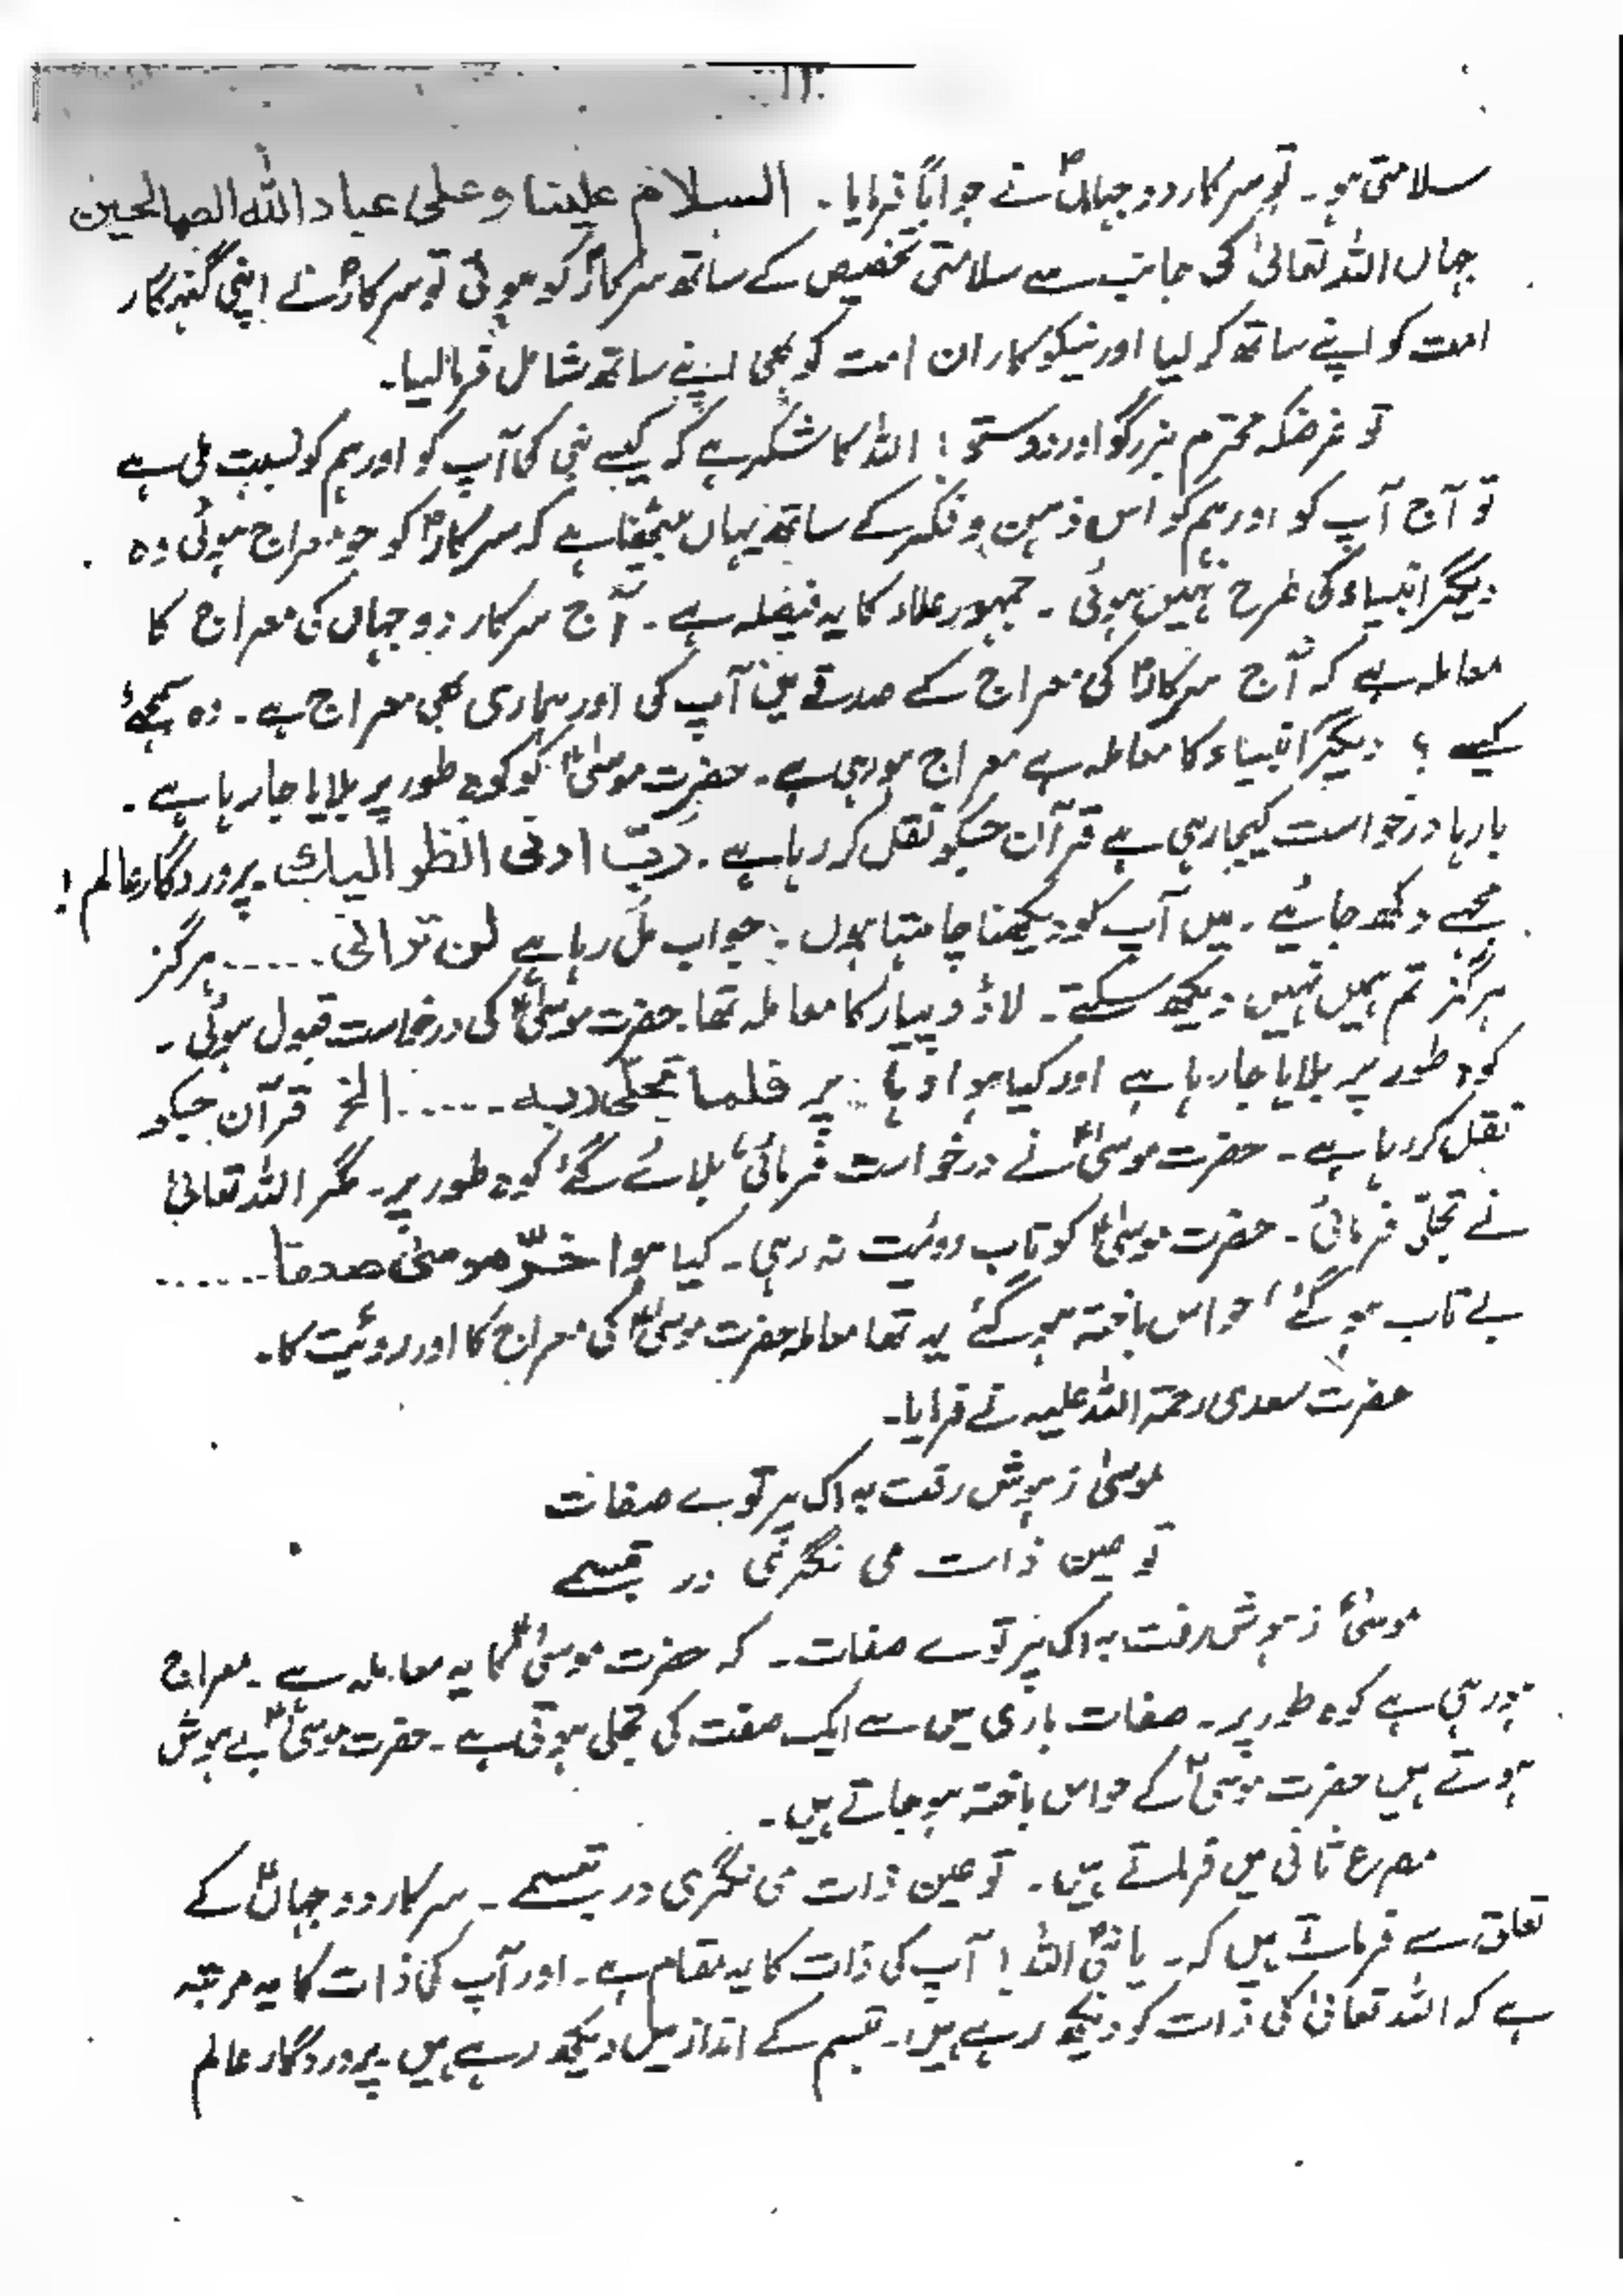 سلامتی ہو۔ تو سرکار دو جہاںؐ نے جواباً فرمایا۔ السلام علینا وعلی عباد اللہ الصالحین
جہاں اللہ تعالیٰ کی جانب سے سلامتی تخصیص کے ساتھ سرکارؐ کو ہوئی تو سرکارؐ نے اپنی گنہگار
امت کو اپنے ساتھ کر لیا اور نیکو کاران امت کو بھی اپنے ساتھ شامل فرمالیا۔
تو غرضکہ محترم بزرگو اور دوستو! اللہ کا شکر ہے کہ کیسے نبی کی آپ کو اور ہم کو نسبت ملی ہے
تو آج آپ کو اور ہم کو اس ذہن و فکر کے ساتھ یہاں بیٹھنا ہے کہ سرکارؐ کو جو معراج ہوئی وہ
دیگر انبیاء کی طرح نہیں ہوئی۔ جمہور علماء کا یہ فیصلہ ہے۔ آج سرکار دو جہاں کی معراج کا
معاملہ ہے کہ آج سرکارؐ کی معراج کے صدقے میں آپ کی اور ہماری بھی معراج ہے۔ وہ سمجھئے
کیسے؟ دیگر انبیاء کا معاملہ ہے معراج ہورہی ہے۔ حضرت موسیٰؑ کو کوہ طور پر بلایا جارہا ہے۔
بارہا درخواست کیجارہی ہے قرآن جسکو نقل کر رہا ہے۔ ربّ ارنی انظر الیک پروردگار عالم!
مجھے دکھ جائیے۔ میں آپ کو دیکھنا چاہتا ہوں۔ جواب مل رہا ہے لن ترانی...... ہرگز
ہرگز تم ہمیں نہیں دیکھ سکتے۔ لاڈ و پیار کا معاملہ تھا۔ حضرت موسیٰؑ کی درخواست قبول ہوئی۔
کوہ طور پر بلایا جارہا ہے اور کیا ہوا وہاں پر فلما تجلّی ربہ ...... الخ قرآن جسکو
نقل کر رہا ہے۔ حضرت موسیٰؑ نے درخواست فرمائی، بلائے گئے کوہ طور پر۔ مگر اللہ تعالیٰ
نے تجلّی فرمائی۔ حضرت موسیٰؑ کو تاب روئیت نہ رہی۔ کیا ہوا خرّ موسیٰ صعقا ......
بے تاب ہو گئے، حواس باختہ ہو گئے یہ تھا معاملہ حضرت موسیٰؑ کی معراج کا اور روئیت کا۔
حضرت سعدی رحمۃ اللہ علیہ نے فرمایا۔
موسیٰ ز ہوش رفت بہ اک پر توے صفات
تو عین ذات می نگری در تبسمے
موسیٰؑ ز ہوش رفت بہ اک پر توے صفات۔ کہ حضرت موسیٰؑ کا یہ معاملہ ہے۔ معراج
ہورہی ہے کوہ طور پر۔ صفات باری میں سے ایک صفت کی تجلی ہوتی ہے۔ حضرت موسیٰؑ بے ہوش
ہوتے ہیں حضرت موسیٰؑ کے حواس باختہ ہو جاتے ہیں۔
مصرع ثانی میں فرماتے ہیں۔ تو عین ذات می نگری در تبسمے۔ سرکار دو جہاںؐ کے
تعلق سے فرماتے ہیں کہ۔ یا نبیؐ اللہ! آپ کی ذات کا یہ مقام ہے۔ اور آپ کی ذات کا یہ مرتبہ
ہے کہ اللہ تعالیٰ کی ذات کو دیکھ رہے ہیں۔ تبسم کے انداز میں دیکھ رہے ہیں۔ پروردگار عالم